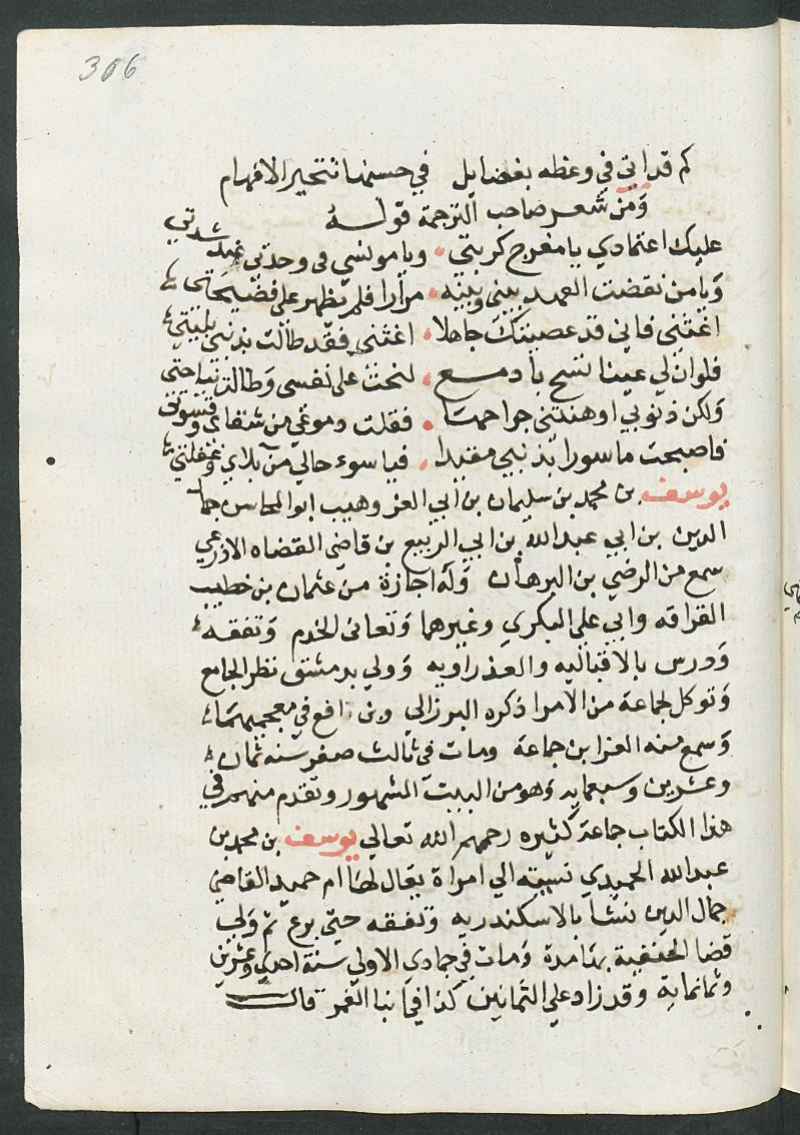 306
كم قد اتى في وعظه بفضايل في حسنها تتحير الافهام
ومن شعر صاحب الترجمة قوله
عليك اعتمادي يا مفرج كربتي ويا مونسي في وحدتي عند شدتي
ويا من نقضت العهد بيني وبينه مرارا فلم يظهر على فضيحتي
اغثني فاني قد عصيتك جاهلا اغثني فقد طالت بذنبي بليتي
فلو ان لي عينا تسح بادمع لنحت على نفسي وطالت نياحتي
ولكن ذنوبي اوهنتني جراحها فقلت دموعي من شقاي وقسوتي
فاصبحت ماسورا بذنبي مقيدا فيا سوء حالي من بلاي وغفلتي
يوسف بن محمد بن سليمان بن ابي العز وهيب ابو المحاسن جمال
الدين بن ابي عبد الله بن ابي الربيع بن قاضي القضاه الاذرعي
سمع من الرضي بن البرهان وله اجازة من عثمان بن خطيب
القرافه وابي علي البكري وغيرهما وتعانى الخدم وتفقه
ودرس بالاقباليه والعذراويه وولي بدمشق نظر الجامع
وتوكل لجماعة من الامرا ذكره البرزالي وبن رافع في معجميهما
وسمع منه العز ابن جماعة ومات في ثالث صفر سنه ثمان
وعشرين وسبعمايه وهو من البيت المشهور وتقدم منهم في
هذا الكتاب جماعة كثيره رحمهم الله تعالي يوسف بن محمد بن
عبد الله الحميدي نسبته الي امراة يقال لها ام حميد القاضي
جمال الدين نشا بالاسكندريه وتفقه حتى برع ثم ولي
قضا الحنفية بها مدة ومات في جمادي الاولي سنة احدي وعشرين
وثمانماية وقد زاد علي الثمانين كذا في انبا الغمر قال